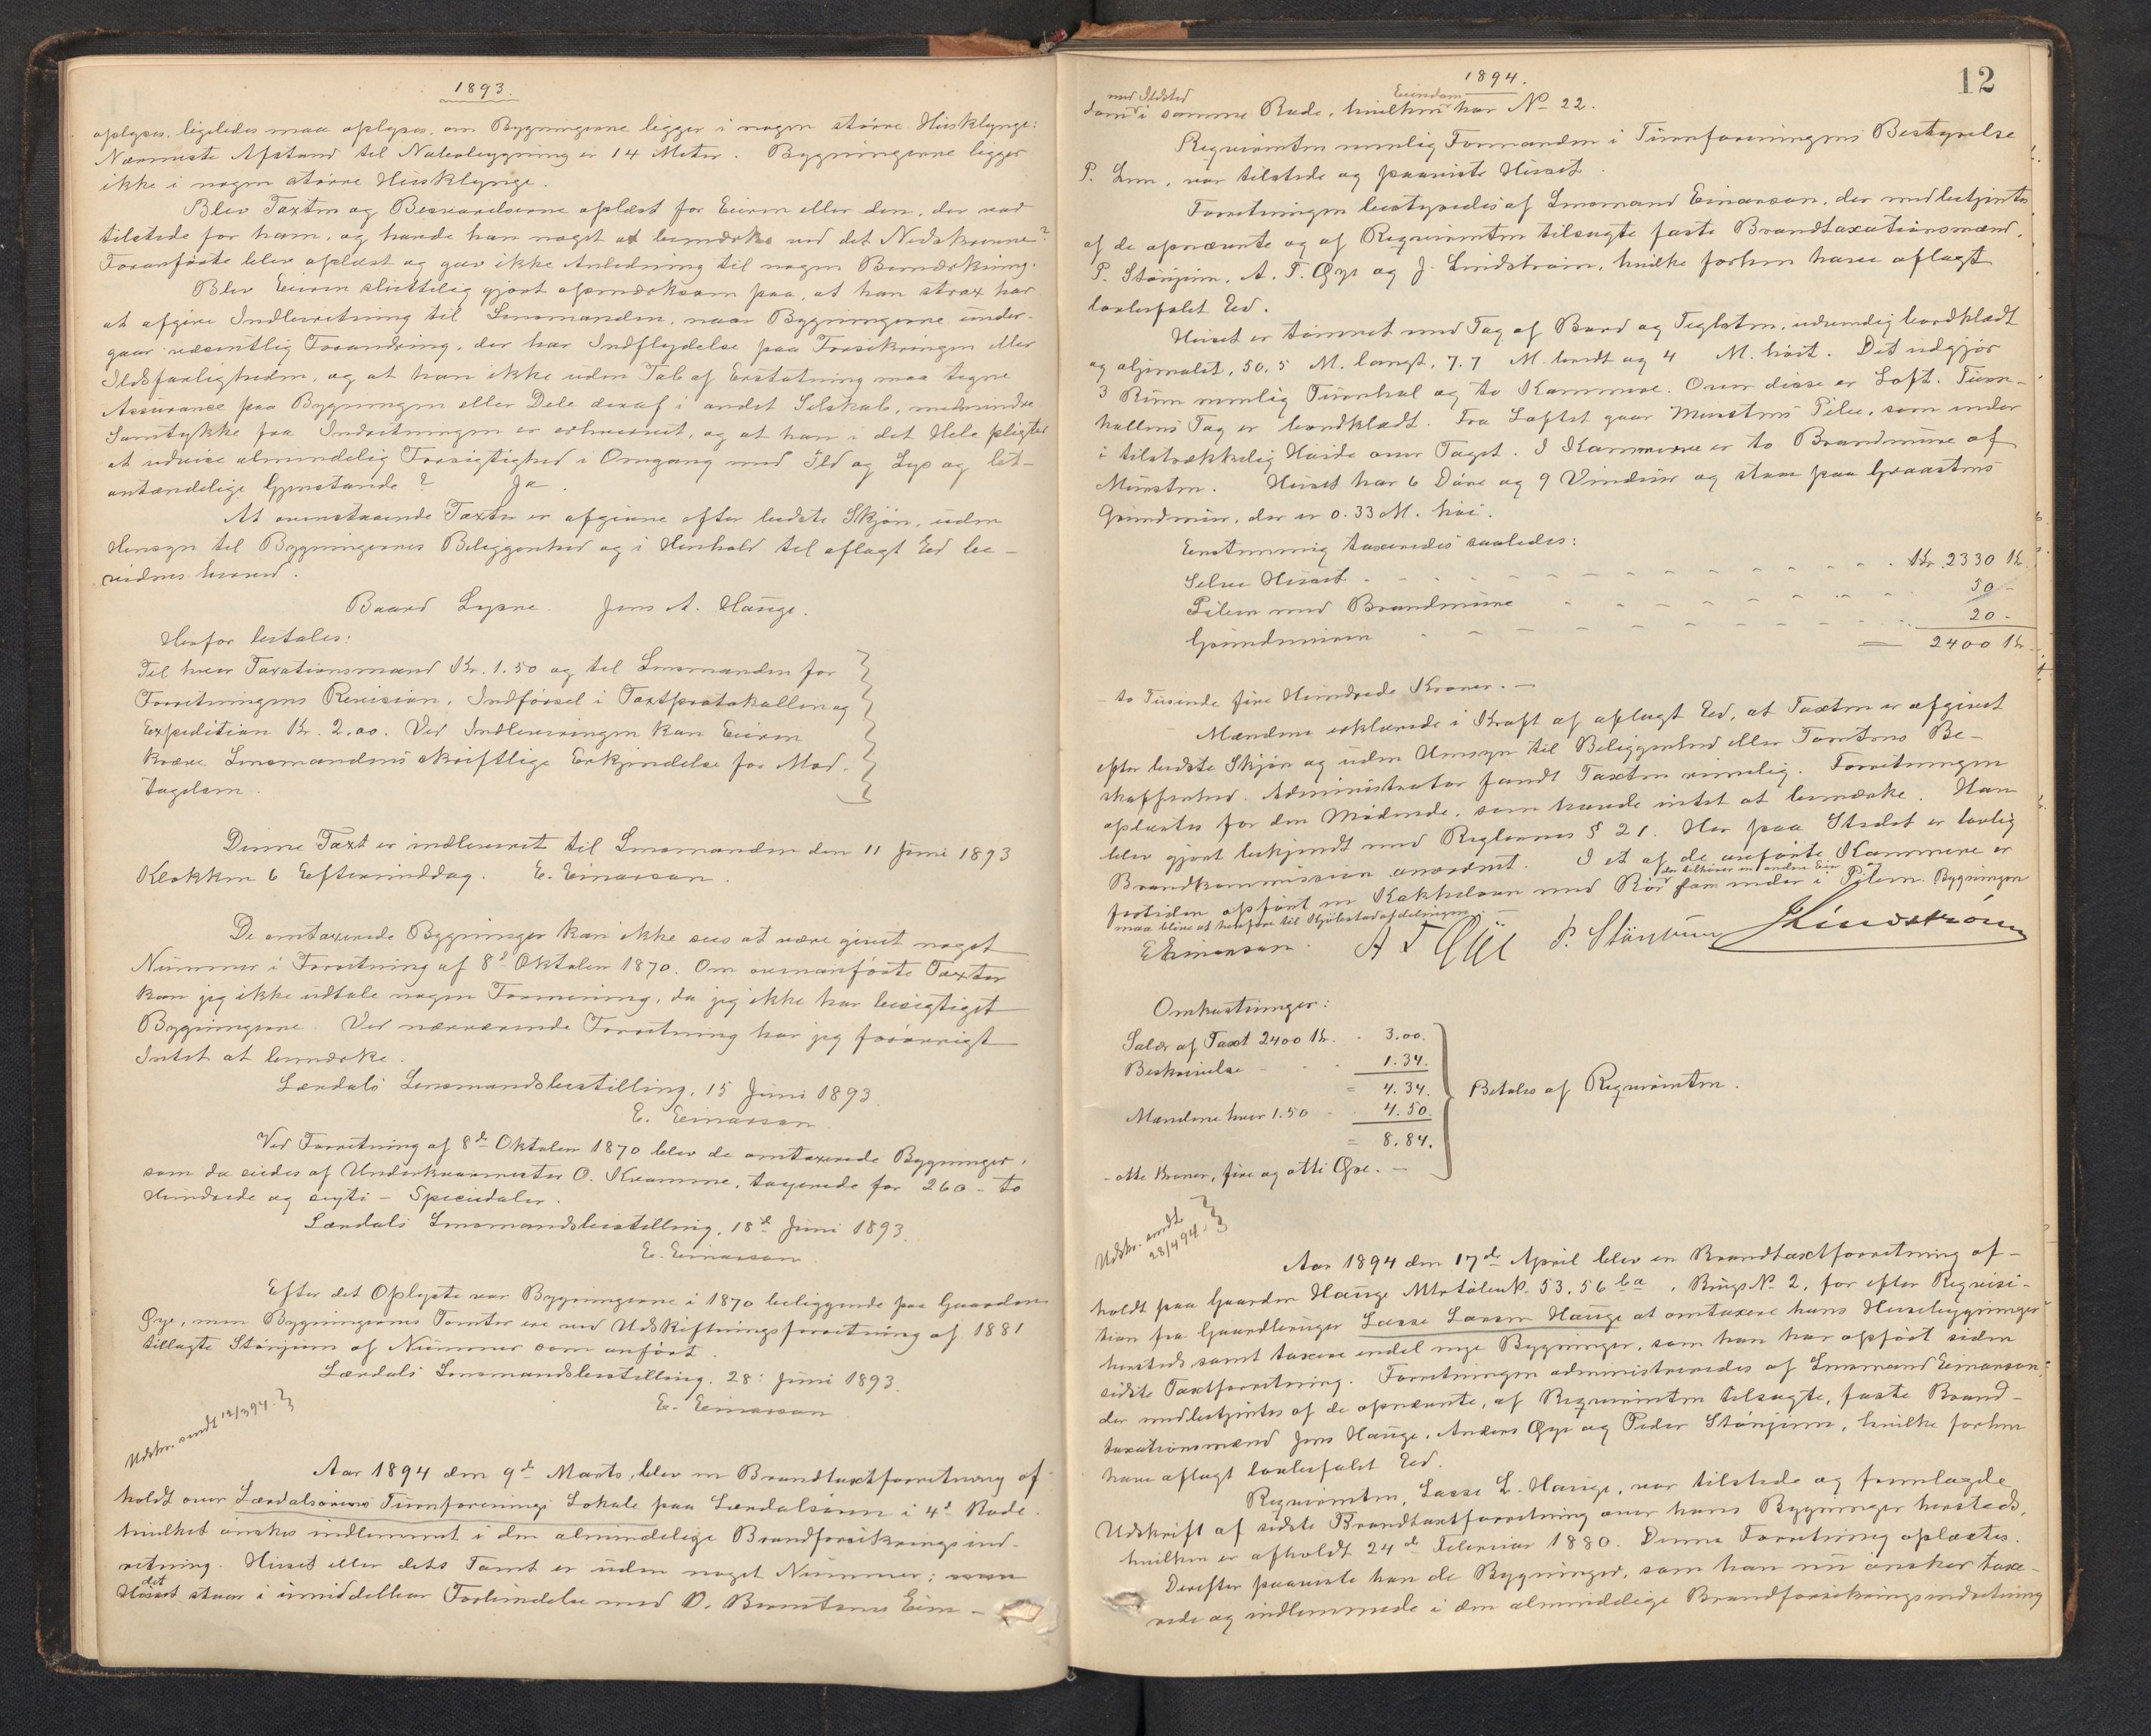 1893.
oplyses, ligeledes maa oplyses, om Bygningerne ligger i nogen større Husklynge:
Nærmeste Afstand til Nabobygning er 14 Meter. Bygningerne ligger
ikke i nogen større Husklynge.
Blev Taxten og Besvarelserne oplæst for Eieren eller den, der var
tilstede for ham, og havde han noget at bemærke ved det Nedskrevne?
Foranførte blev oplæst og gav ikke Anledning til nogen Bemærkning.
Blev Eieren sluttelig gjort opmærksom paa, at han strax har
at afgive Indberetning til Lensmanden, naar Bygningerne under-
gaar væsentlig Forandring, der har Indflydelse paa Forsikringen eller
Ildsfarligheden, og at han ikke uden Tab af Erstatning maa tegne
Assurance paa Bygningen eller Dele deraf i andet Selskab, medmindre
Samtykke fra Indretningen er erhvervet, og at han i det Hele pligter
at udvise almindelig Forsigtighed i Omgang med Ild og Lys og let-
antændelige Gjenstande? Ja.
At ovenstaaende Taxter er afgivne efter bedste Skjøn, uden
Hensyn til Bygningernes Beliggenhed og i Henhold til aflagt Ed be-
vidnes herved.
Baard Lysne. Jens A. Hauge.
Herfor betales:
Til hver Taxationsmand Kr. 1.50 og til Lensmanden for
Forretningens Revision, Indførsel i Taxtprotokollen og
Expedition Kr. 2.00. Ved Indleveringen kan Eieren
kræve Lensmandens skriftlige Erkjendelse for Mod-
tagelsen.
Denne Taxt er indleveret til Lensmanden den 11 Juni 1893
Klokken 6 Eftermiddag. E. Einarson.
De omtaxerede Bygninger kan ikke sees at være givet noget
Nummer i Forretning af 8d Oktober 1870. Om ovenanførte Taxter
kan jeg ikke udtale nogen Formening, da jeg ikke har besigtiget
Bygningerne. Ved nærværende Forretning har jeg forøvrigt
Intet at bemærke.
Lærdals Lensmandsbestilling, 15 Juni 1893.
E. Einarson
Ved Forretning af 8de Oktober 1870 blev de omtaxerede Bygninger,
som da eiedes af Underkvarmester O. Kvamme, taxerede for 260 - to
Hundrede og sexti - Speciedaler.
Lærdals Lensmandsbestilling, 18d Juni 1893.
E. Einarson
Efter det Oplyste var Bygningerne i 1870 beliggende paa Gaarden
Øye, men Bygningernes Tomter ere ved Udskiftningsforretning af 1881
tillagte Stønjum af Nummer som anført.
Lærdals Lensmandsbestilling, 28: Juni 1893.
E. Einarson
Udskr. sendt 12/3 94.
Aar 1894 den 9de Marts blev en Brandtaxtforretning af-
holdt over Lærdalsørens Turnforenings Lokale paa Lærdalsøren i 4d Rode,
hvilket ønskes indlemmet i den almindelige Brandforsikringsind-
retning. Huset eller dets Tomt er uden noget Nummer; men
det
Huset staar i umiddelbar Forbindelse med O. Berntsens Eien-
1894.
12
med Ildsted Eiendom
dom i samme Rode, hvilken har No 22.
Requirenten nemlig Formanden i Turnforeningens Bestyrelse
P. Lem, var tilstede og paaviste Huset.
Forretningen bestyredes af Lensmand Einarson, der medbetjentes
af de opnævnte og af Requirenten tilsagte faste Brandtaxationsmænd,
P. Stønjum, A. T. Øye og J. Lindstrøm, hvilke forhen have aflagt
lovbefalet Ed.
Huset er tømret med Tag af Bord og Teglsten, udvendig bordklædt
og oljemalet, 50,5 M. langt, 7.7 M. bredt og 4 M. høit. Det udgjør
3 Rum nemlig Turnhal og to Kammere. Over disse er Loft. Turn-
hallens Tag er bordklædt. Fra Loftet gaar Murstens Pibe, som ender
i tilstrækkelig Høide over Taget. I Kammerne er to Brandmure af
Mursten. Huset har 6 Døre og 9 Vinduer og staar paa Graastens
Grundmur, der er 0.33 M. høi.
Eenstemmig taxeredes saaledes:
Selve Huset . - - - - - - - . Kr. 2330 Kr.
Piben med Brandmure - - - - - - 50 -
Grundmuren - - - - - - 20 -
= 2400 Kr.
- to Tusinde fire Hundrede Kroner. -
Mændene erklærede i Kraft af aflagt Ed, at Taxten er afgivet
efter bedste Skjøn og uden Hensyn til Beliggenhed eller Tomtens Be-
skaffenhed. Administrator fandt Taxten rimelig. Forretningen
oplæstes for den Mødende, som havde intet at bemærke. Han
blev gjort bekjendt med Reglernes § 21. Her paa Stedet er lovlig
Brandkommission anordnet. I et af de anførte Kammere er
der tilhører en anden Eier og
fortiden opført en Kakkelovn med Rør som ender i Piben. Bygningen
maa blive at henføre til Kjøbstadafdelingen. -
E Einarson. A T Øye P. Stønjum J Lindstrøm
Omkostninger:
Salær af Taxt 2400 Kr. . 3.00.
Beskrivelse - - . 1.34.
= 4.34.
Mændene hver 1.50 - . 4.50.
= 8.84.
Betales af Requirenten.
- otte Kroner, fire og otti Øre. -
Udskr. sendt
28/4 94.
Aar 1894 den 17de April blev en Brandtaxtforretning af-
holdt paa Gaarden Hauge Mtrløbenr. 53, 56 ba, Brugs No 2, for efter Requisi-
tion fra Gaardbruger Lasse Larsen Hauge at omtaxere hans Husebygninger
hersteds samt taxere endel nye Bygninger, som han har opført siden
sidste Taxtforretning. Forretningen administreredes af Lensmand Einarson,
der medbetjentes af de opnævnte, af Requirenten tilsagte, faste Brand-
taxationsmænd Jens Hauge, Anders Øye og Peder Stønjum, hvilke forhen
have aflagt lovbefalet Ed.
Requirenten, Lasse L. Hauge, var tilstede og fremlagde
Udskrift af sidste Brandtaxtforretning over hans Bygninger hersteds,
hvilken er afholdt 24de Februar 1880. Denne Forretning oplæstes.
Derefter paaviste han de Bygninger, som han nu ønsker taxe-
rede og indlemmede i den almindelige Brandforsikringsindretning